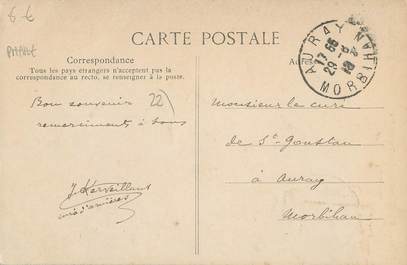 6 €
CARTE POSTALE
Correspondance
Tous les pays étrangers n'acceptent pas la
correspondance au recto, se renseigner à la poste.
AURAY
MORBIHAN
Bon souvenir
22
remerciments à tous
Monsieur le curé
de St-Goustan
à Auray
Morbihan
J. Kerveillant